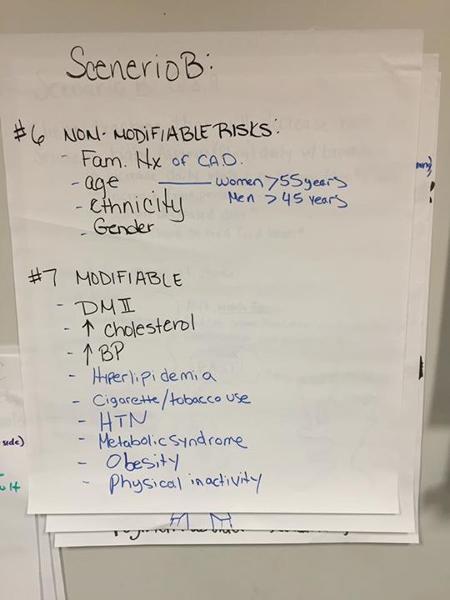 ScenerioB:
#6 NON-MODIFIABLE RISKS:
- Fam. Hx of CAD.
- age — women >55 years
- ethnicity Men >45 years
- Gender
#7 MODIFIABLE
- DM II
- ↑ cholesterol
- ↑ BP
- Hiperlipidemia
- Cigarette/tobacco use
- HTN
- Metabolic syndrome
- Obesity
- Physical inactivity
side)